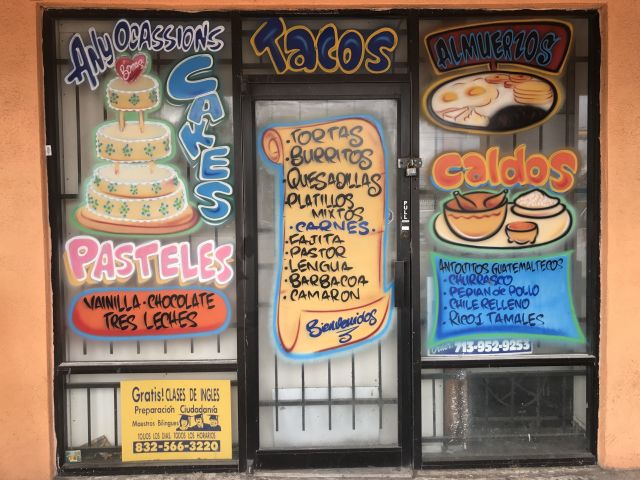 Any Ocassions
CAKES
PASTELES
VAINILLA - CHOCOLATE
TRES LECHES
Gratis! CLASES DE INGLES
Preparación Ciudadanía
Maestros Bilingues
TODOS LOS DIAS, TODOS LOS HORARIOS
832-566-3220
Tacos
·TORTAS
·BURRITOS
·QUESADILLAS
PLATILLOS
MIXTOS
·CARNES·
·FAJITA
·PASTOR
·LENGUA
·BARBACOA
·CAMARON
Bienvenidos
PULL
ALMUERZOS
CALDOS
ANTOJITOS GUATEMALTECOS
·CHURRASCO
·PEPIAN DE POLLO
·CHILE RELLENO
RICOS TAMALES
713-952-9253